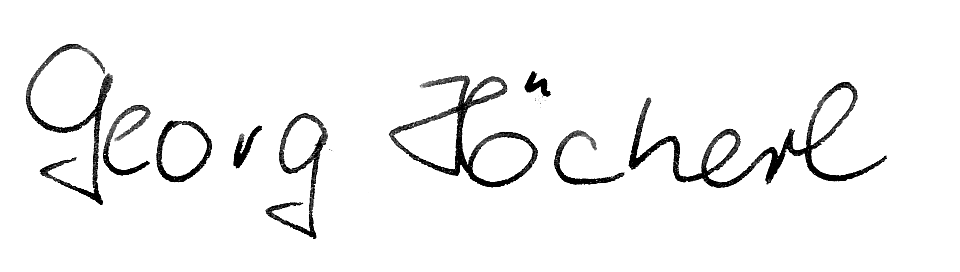 Georg Höcherl